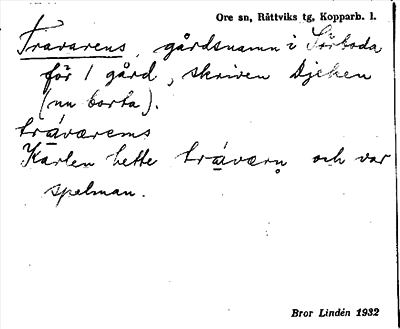 Ore sn, Rättviks tg, Kopparb. l.
Travarens, gårdsnamn i Sörboda
för 1 gård, skriven Djeken
(nu borta).
tráværems
Karlen hette tráværn och var
spelman.
Bror Lindén 1932